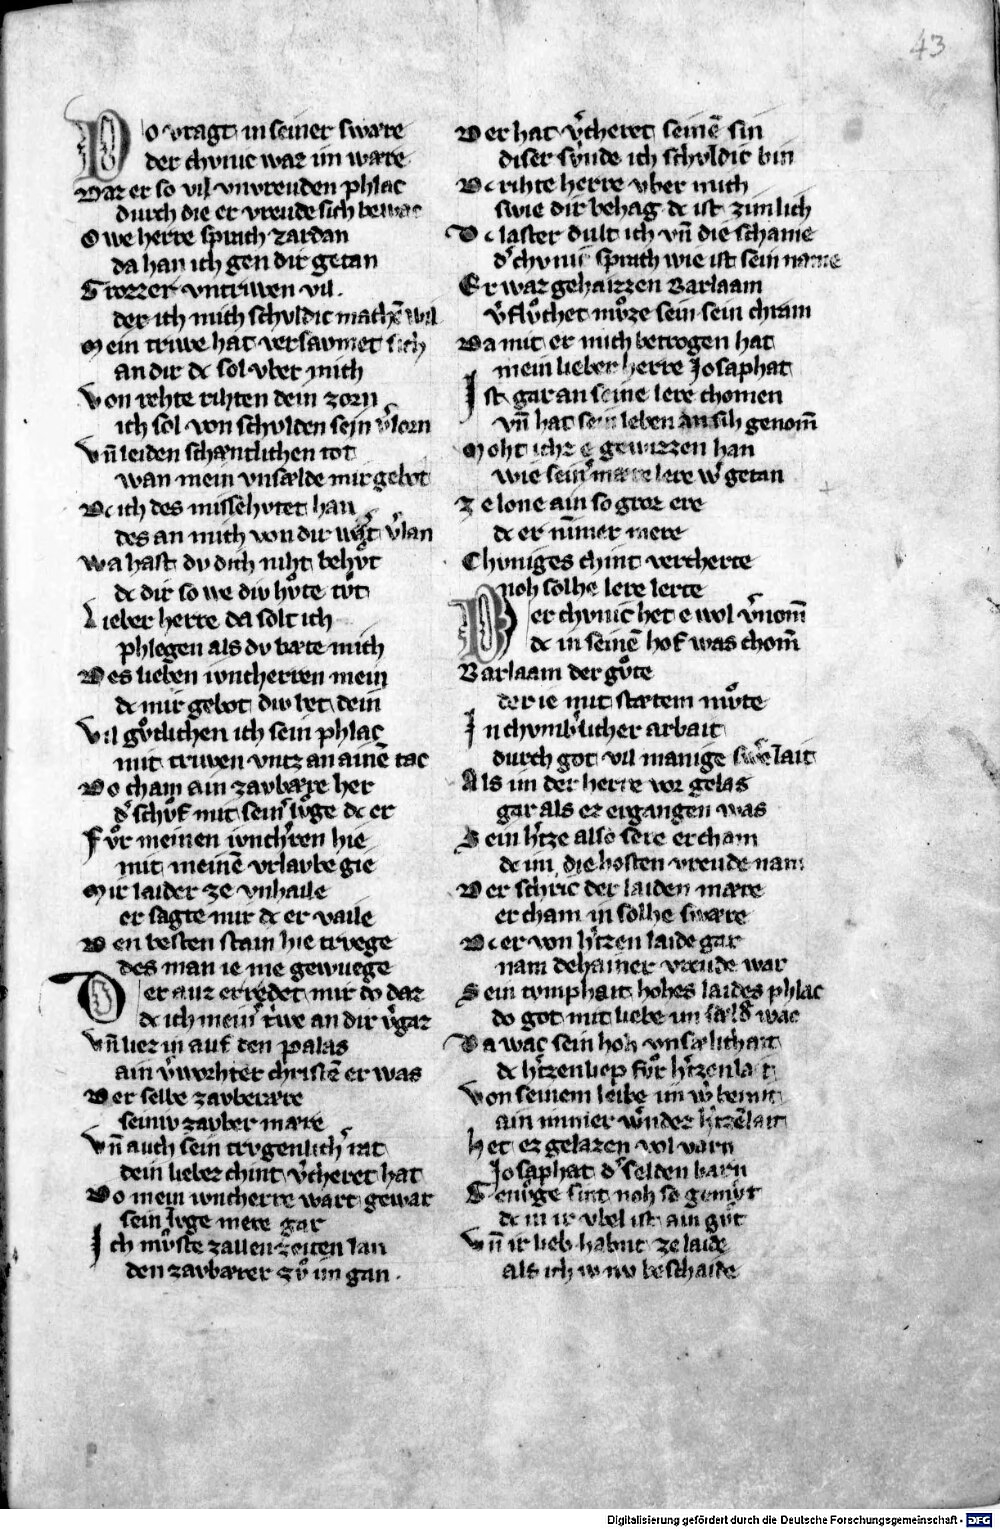 43
Do vragt in seiner swære
der chvnic waz im wære
Daz er so vil vnvreuden phlac
durch die er vreude sich bewac
Owe herre sprach zardan
da han ich gen dir getan
Grozzer vntriwen vil.
der ich mich schvldic machē wil
Mein triwe hat versavmet sich
an dir dc sol vber mich
Von rehte rihten dein zorn
ich sol von schvlden sein v̓lorn
Vn̄ leiden schæntlichen tot
wan mein vnsælde mir gebot
Dc ich des missehvtet han
des an mich von dir wart v̓lan
Wa hast dv dich niht behv̊t
dc dir so we div hv̊te tv̊t
Lieber herre da solt ich
phlegen als dv bæte mich
Des lieben ivncherren mein
dc mir gebot div bet dein
Vil gv̊tlichen ich sein phlac
mit triwen vntz an ainē tac
Do cham ain zavbære her
d̓ schv̊f mit sein̓ lv̊ge dc er
Fv̊r meinen ivnch̓ren hie
mit meinē vrlavbe gie
Mir laider ze vnhaile
er sagte mir dc er vaile
Den besten stain hie trvege
des man ie me gewuege
Der auz erredet mir do daz
dc ich mein̓ t̓we an dir v̓gaz
Vn̄ liez in auf den palas
ain v̓worhter christē er was
Der selbe zavberære
seiniv zavber mære
Vn̄ auch sein trvgenlich̓ rat
dein liebez chint v̓cheret hat
Do mein ivncherre wart gewar
sein lvge mere gar
Ich mv̊ste zallen zeiten lan
den zavbærer zv̊ im gan.
Der hat v̓cheret seinē sin
diser sv̊nde ich schvldic bin
Dc rihte herre vber mich
swie dir behag dc ist zimlich
Dc laster dult ich vn̄ die schame
d̓ chvnic sprach wie ist sein name
Er waz gehaizzen Barlaam
v̓flv̊chet mv̊ze sein sein chram
Da mit er mich betrogen hat
mein lieber herre Josaphat
Ist gar an seine lere chomen
vn̄ hat sein leben an sih genom̄
Moht ichz e gewizzen han
wie sein̓ mære lere w̓ getan
Ze lone ain so groz ere
dc er nim̄er mere
Chvniges chint vercherte
noh solhe lere lerte
Der chvnic het e wol v̓nom̄
dc in seinē hof was chom̄
Barlaam der gv̊te
der ie mit stætem mv̊te
In chvmb̓licher arbait
durch got vil manige sw̓e lait
Als im der herre vor gelas
gar als ez ergangen was
Sein h̓tze also sere ercham
dc im die hosten vreude nam
Der schric der laiden mære
er cham in solhe swære
Dc er von h̓tzen laide gar
nam dehainer vreude war
Sein tvmphait hohes laides phlac
do got mit liebe im sæld̓ wac
Da wac sein hoh vnsælichait
dc h̓tzenliep fv̊r h̓tzenlait
Von seinem leibe im w̓ benint
ain immer w̓nder h̓tzēlait
het ez gelazen wol varn
Josaphat d̓ selden barn
Genv̊ge sint noh so gemv̊t
dc in ir vbel ist ain gv̊t
Vn̄ ir lieb habnt ze laide
als ich iv nv beschaide
Digitalisierung gefördert durch die Deutsche Forschungsgemeinschaft - DFG